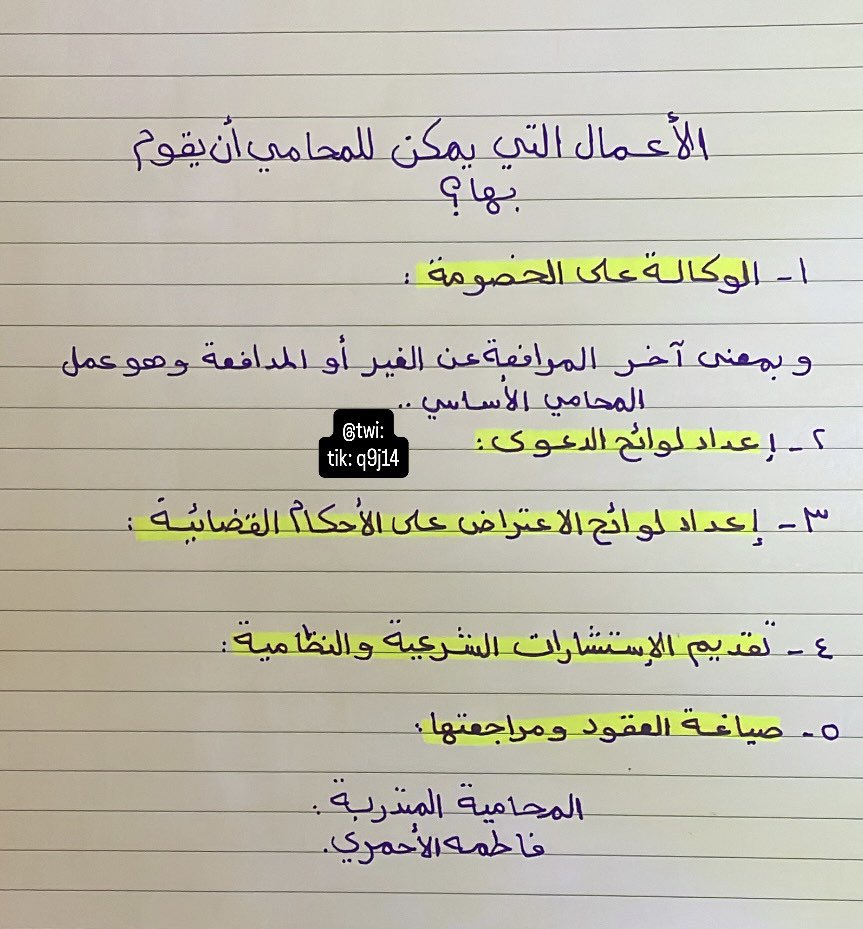 الأعمال التي يمكن للمحامي أن يقوم
بها؟
١- الوكالة على الخصومة :
وبمعنى آخر المرافعة عن الغير أو المدافعة وهو عمل
المحامي الأساسي ..
@twi:
tik: q9j14
٢- إعداد لوائح الدعوى :
٣- إعداد لوائح الاعتراض على الأحكام القضائية :
٤- تقديم الإستشارات الشرعية والنظامية :
٥- صياغة العقود ومراجعتها :
المحامية المتدربة .
فاطمه الأحمري .